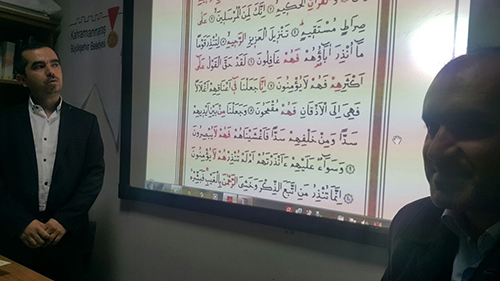 Kahramanmaraş
Büyükşehir Belediyesi
وَالْقُرْاٰنِ الْحَكِيمِ اِنَّكَ لَمِنَ الْمُرْسَلِينَ عَلٰى
صِرَاطٍ مُسْتَقِيمٍ تَنْزِيلَ الْعَزِيزِ الرَّحِيمِ لِتُنْذِرَ قَوْمًا
مَا اُنْذِرَ اٰبَاؤُهُمْ فَهُمْ غَافِلُونَ لَقَدْ حَقَّ الْقَوْلُ عَلٰى
اَكْثَرِهِمْ فَهُمْ لَا يُؤْمِنُونَ اِنَّا جَعَلْنَا فِى اَعْنَاقِهِمْ اَغْلَالًا
فَهِىَ اِلَى الْاَذْقَانِ فَهُمْ مُقْمَحُونَ وَجَعَلْنَا مِنْ بَيْنِ اَيْدِيهِمْ
سَدًّا وَمِنْ خَلْفِهِمْ سَدًّا فَاَغْشَيْنَاهُمْ فَهُمْ لَا يُبْصِرُونَ
وَسَوَاءٌ عَلَيْهِمْ ءَاَنْذَرْتَهُمْ اَمْ لَمْ تُنْذِرْهُمْ لَا يُؤْمِنُونَ
اِنَّمَا تُنْذِرُ مَنِ اتَّبَعَ الذِّكْرَ وَخَشِىَ الرَّحْمٰنَ بِالْغَيْبِ فَبَشِّرْهُ